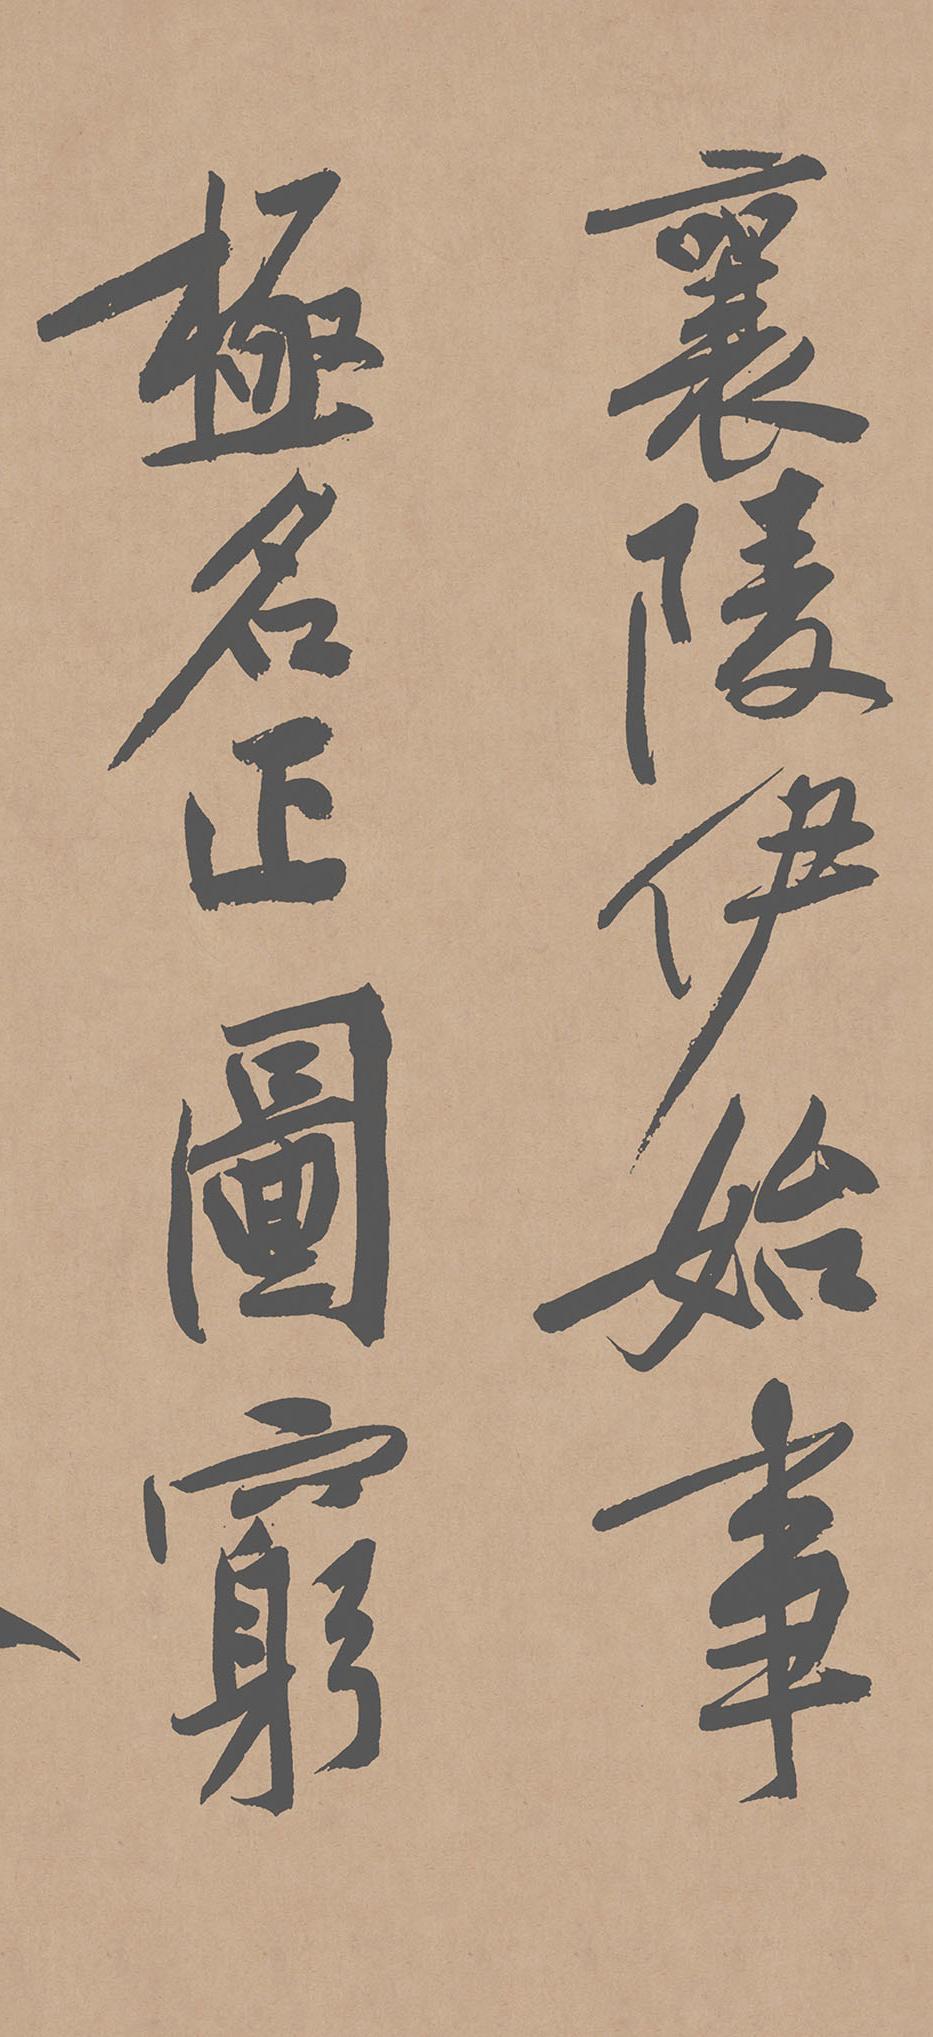 襄陵伊始事
極名正圖窮